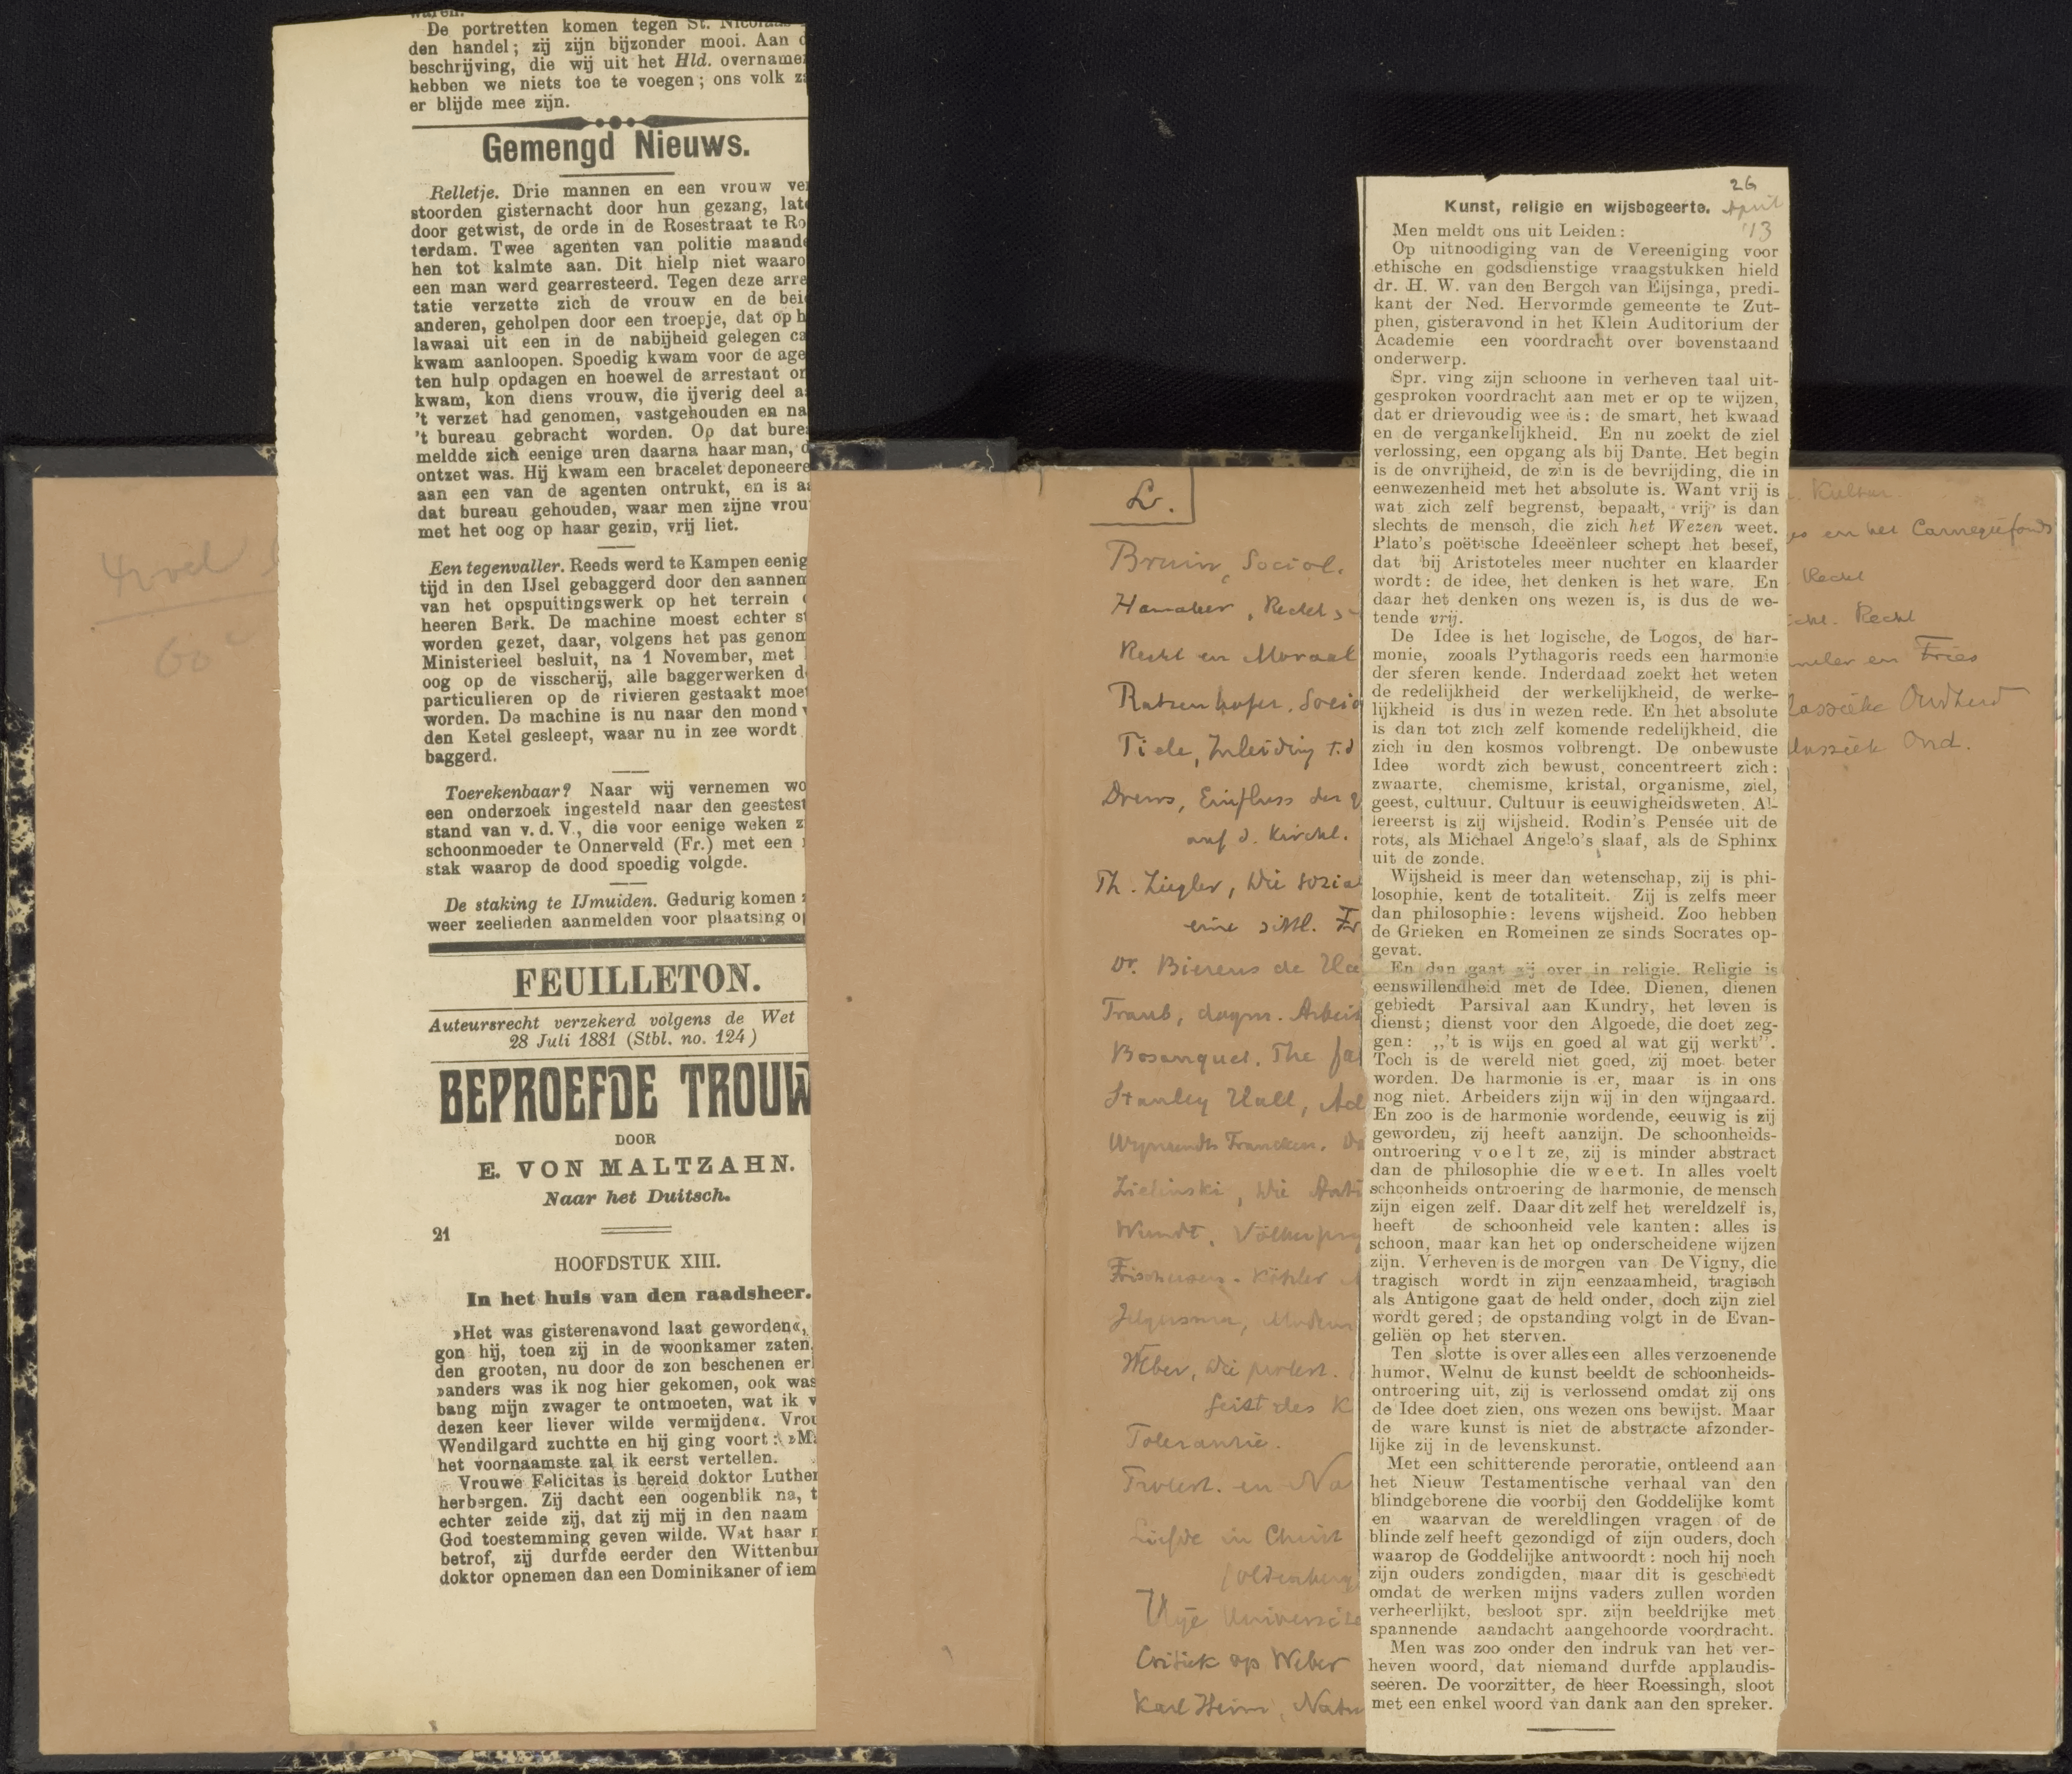 De portretten komen tegen St. Nicolaas
den handel; zij zijn bijzonder mooi. Aan d
beschrijving, die wij uit het Hld. overnamen
hebben we niets toe te voegen; ons volk za
er blijde mee zijn.
Gemengd Nieuws.
Relletje. Drie mannen en een vrouw ver
stoorden gisternacht door hun gezang, late
door getwist, de orde in de Rosestraat te Ro
terdam. Twee agenten van politie maande
hen tot kalmte aan. Dit hielp niet waaro
een man werd gearresteerd. Tegen deze arre
tatie verzette zich de vrouw en de beid
anderen, geholpen door een troepje, dat op h
lawaai uit een in de nabijheid gelegen ca
kwam aanloopen. Spoedig kwam voor de age
ten hulp opdagen en hoewel de arrestant on
kwam, kon diens vrouw, die ijverig deel a
't verzet had genomen, vastgehouden en na
't bureau gebracht worden. Op dat burea
meldde zich eenige uren daarna haar man, d
ontzet was. Hij kwam een bracelet deponeere
aan een van de agenten ontrukt, en is aa
dat bureau gehouden, waar men zijne vrou
met het oog op haar gezin, vrij liet.
Een tegenvaller. Reeds werd te Kampen eenig
tijd in den IJsel gebaggerd door den aannem
van het opspuitingswerk op het terrein
heeren Berk. De machine moest echter st
worden gezet, daar, volgens het pas genom
Ministerieel besluit, na 1 November, met
oog op de visscherij, alle baggerwerken d
particulieren op de rivieren gestaakt moet
worden. De machine is nu naar den mond v
den Ketel gesleept, waar nu in zee wordt
baggerd.
Toerekenbaar? Naar wij vernemen wo
een onderzoek ingesteld naar den geestest
stand van v. d. V., die voor eenige weken z
schoonmoeder te Onnerveld (Fr.) met een
stak waarop de dood spoedig volgde.
De staking te IJmuiden. Gedurig komen
weer zeelieden aanmelden voor plaatsing op
FEUILLETON.
Auteursrecht verzekerd volgens de Wet
28 Juli 1881 (Stbl. no. 124)
BEPROEFDE TROUW
DOOR
E. VON MALTZAHN.
Naar het Duitsch.
21
HOOFDSTUK XIII.
In het huis van den raadsheer.
»Het was gisterenavond laat geworden«,
gon hij, toen zij in de woonkamer zaten,
den grooten, nu door de zon beschenen er
»anders was ik nog hier gekomen, ook was
bang mijn zwager te ontmoeten, wat ik v
dezen keer liever wilde vermijden«. Vrou
Wendilgard zuchtte en hij ging voort: »M
het voornaamste zal ik eerst vertellen.
Vrouwe Felicitas is bereid doktor Luther
herbergen. Zij dacht een oogenblik na, t
echter zeide zij, dat zij mij in den naam
God toestemming geven wilde. Wat haar m
betrof, zij durfde eerder den Wittenbur
doktor opnemen dan een Dominikaner of iem
L.
Bruin, Sociol.
Hamaker, Recht,
Recht en Moraal
Ratzenhofer, Socio
Tiele, Inleiding t.d
Drews, Einfluss der
auf d. Kirchl.
Th. Ziegler, Die sozial
eine sittl. Fr
Dr. Bierens de Haa
Traub, dogm. Arbeit
Bosanquet. The
Stanley Hall, Ad
Wijnaendts Francken.
Zielinski, Die Anti
Wundt, Völkerpsy
Frischeisen-Köhler
Jelgersma, Modern
Weber, Die protest.
Geist des K
Tolerantie.
Protest. en Na
Liefde in Christ
(Oldenberg
Vrije Universite
Critiek op Weber
Karl Heim, Natu
26
April
'13
Kunst, religie en wijsbegeerte.
Men meldt ons uit Leiden:
Op uitnoodiging van de Vereeniging voor
ethische en godsdienstige vraagstukken hield
dr. H. W. van den Bergch van Eijsinga, predi-
kant der Ned. Hervormde gemeente te Zut-
phen, gisteravond in het Klein Auditorium der
Academie een voordracht over bovenstaand
onderwerp.
Spr. ving zijn schoone in verheven taal uit-
gesproken voordracht aan met er op te wijzen,
dat er drievoudig wee is: de smart, het kwaad
en de vergankelijkheid. En nu zoekt de ziel
verlossing, een opgang als bij Dante. Het begin
is de onvrijheid, de zin is de bevrijding, die in
eenwezenheid met het absolute is. Want vrij is
wat zich zelf begrenst, bepaalt, vrij is dan
slechts de mensch, die zich het Wezen weet.
Plato's poëtische Ideeënleer schept het besef,
dat bij Aristoteles meer nuchter en klaarder
wordt: de idee, het denken is het ware. En
daar het denken ons wezen is, is dus de we-
tende vrij.
De Idee is het logische, de Logos, de har-
monie, zooals Pythagoris reeds een harmonie
der sferen kende. Inderdaad zoekt het weten
de redelijkheid der werkelijkheid, de werke-
lijkheid is dus in wezen rede. En het absolute
is dan tot zich zelf komende redelijkheid, die
zich in den kosmos volbrengt. De onbewuste
Idee wordt zich bewust, concentreert zich:
zwaarte, chemisme, kristal, organisme, ziel,
geest, cultuur. Cultuur is eeuwigheidsweten. Al-
lereerst is zij wijsheid. Rodin's Pensée uit de
rots, als Michael Angelo's slaaf, als de Sphinx
uit de zonde.
Wijsheid is meer dan wetenschap, zij is phi-
losophie, kent de totaliteit. Zij is zelfs meer
dan philosophie: levens wijsheid. Zoo hebben
de Grieken en Romeinen ze sinds Socrates op-
gevat.
En dan gaat zij over in religie. Religie is
eenswillendheid met de Idee. Dienen, dienen
gebiedt Parsival aan Kundry, het leven is
dienst; dienst voor den Algoede, die doet zeg-
gen: „'t is wijs en goed al wat gij werkt”.
Toch is de wereld niet goed, zij moet beter
worden. De harmonie is er, maar is in ons
nog niet. Arbeiders zijn wij in den wijngaard.
En zoo is de harmonie wordende, eeuwig is zij
geworden, zij heeft aanzijn. De schoonheids-
ontroering voelt ze, zij is minder abstract
dan de philosophie die weet. In alles voelt
schoonheids ontroering de harmonie, de mensch
zijn eigen zelf. Daar dit zelf het wereldzelf is,
heeft de schoonheid vele kanten: alles is
schoon, maar kan het op onderscheidene wijzen
zijn. Verheven is de morgen van De Vigny, die
tragisch wordt in zijn eenzaamheid, tragisch
als Antigone gaat de held onder, doch zijn ziel
wordt gered; de opstanding volgt in de Evan-
geliën op het sterven.
Ten slotte is over alles een alles verzoenende
humor. Welnu de kunst beeldt de schoonheids-
ontroering uit, zij is verlossend omdat zij ons
de Idee doet zien, ons wezen ons bewijst. Maar
de ware kunst is niet de abstracte afzonder-
lijke zij in de levenskunst.
Met een schitterende peroratie, ontleend aan
het Nieuw Testamentische verhaal van den
blindgeborene die voorbij den Goddelijke komt
en waarvan de wereldlingen vragen of de
blinde zelf heeft gezondigd of zijn ouders, doch
waarop de Goddelijke antwoordt: noch hij noch
zijn ouders zondigden, maar dit is geschiedt
omdat de werken mijns vaders zullen worden
verheerlijkt, besloot spr. zijn beeldrijke met
spannende aandacht aangehoorde voordracht.
Men was zoo onder den indruk van het ver-
heven woord, dat niemand durfde applaudis-
seeren. De voorzitter, de heer Roessingh, sloot
met een enkel woord van dank aan den spreker.
Kultur
en het Carnegiefonds
Recht
Recht
en Fries
Oudheid
Oud.